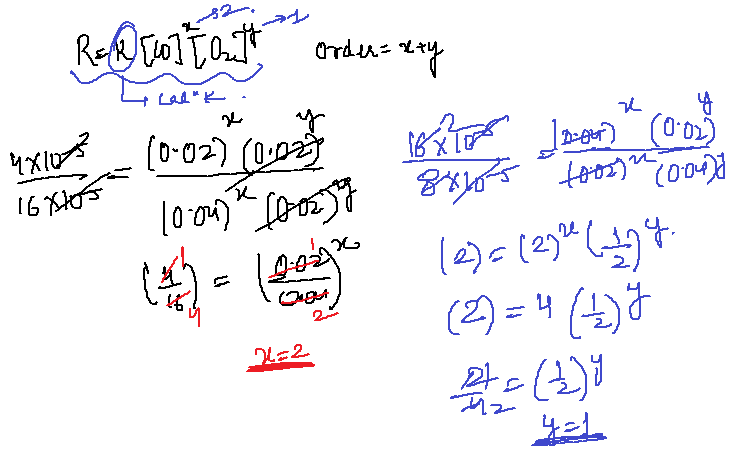 R = K [CO]^x [O2]^y → 2 → 1
order = x+y
→ cal" K.
4×10^-5 / 16×10^-5 = (0.02)^x (0.02)^y / (0.04)^x (0.02)^y
(4/16) = (0.02/0.04)^x
1 4 1 2
x=2
16×10^-5 / 8×10^-5 = (0.04)^x (0.02)^y / (0.02)^x (0.04)^y
2
(2) = (2)^x (1/2)^y.
(2) = 4 (1/2)^y
2/4 = (1/2)^y
1 2
y=1